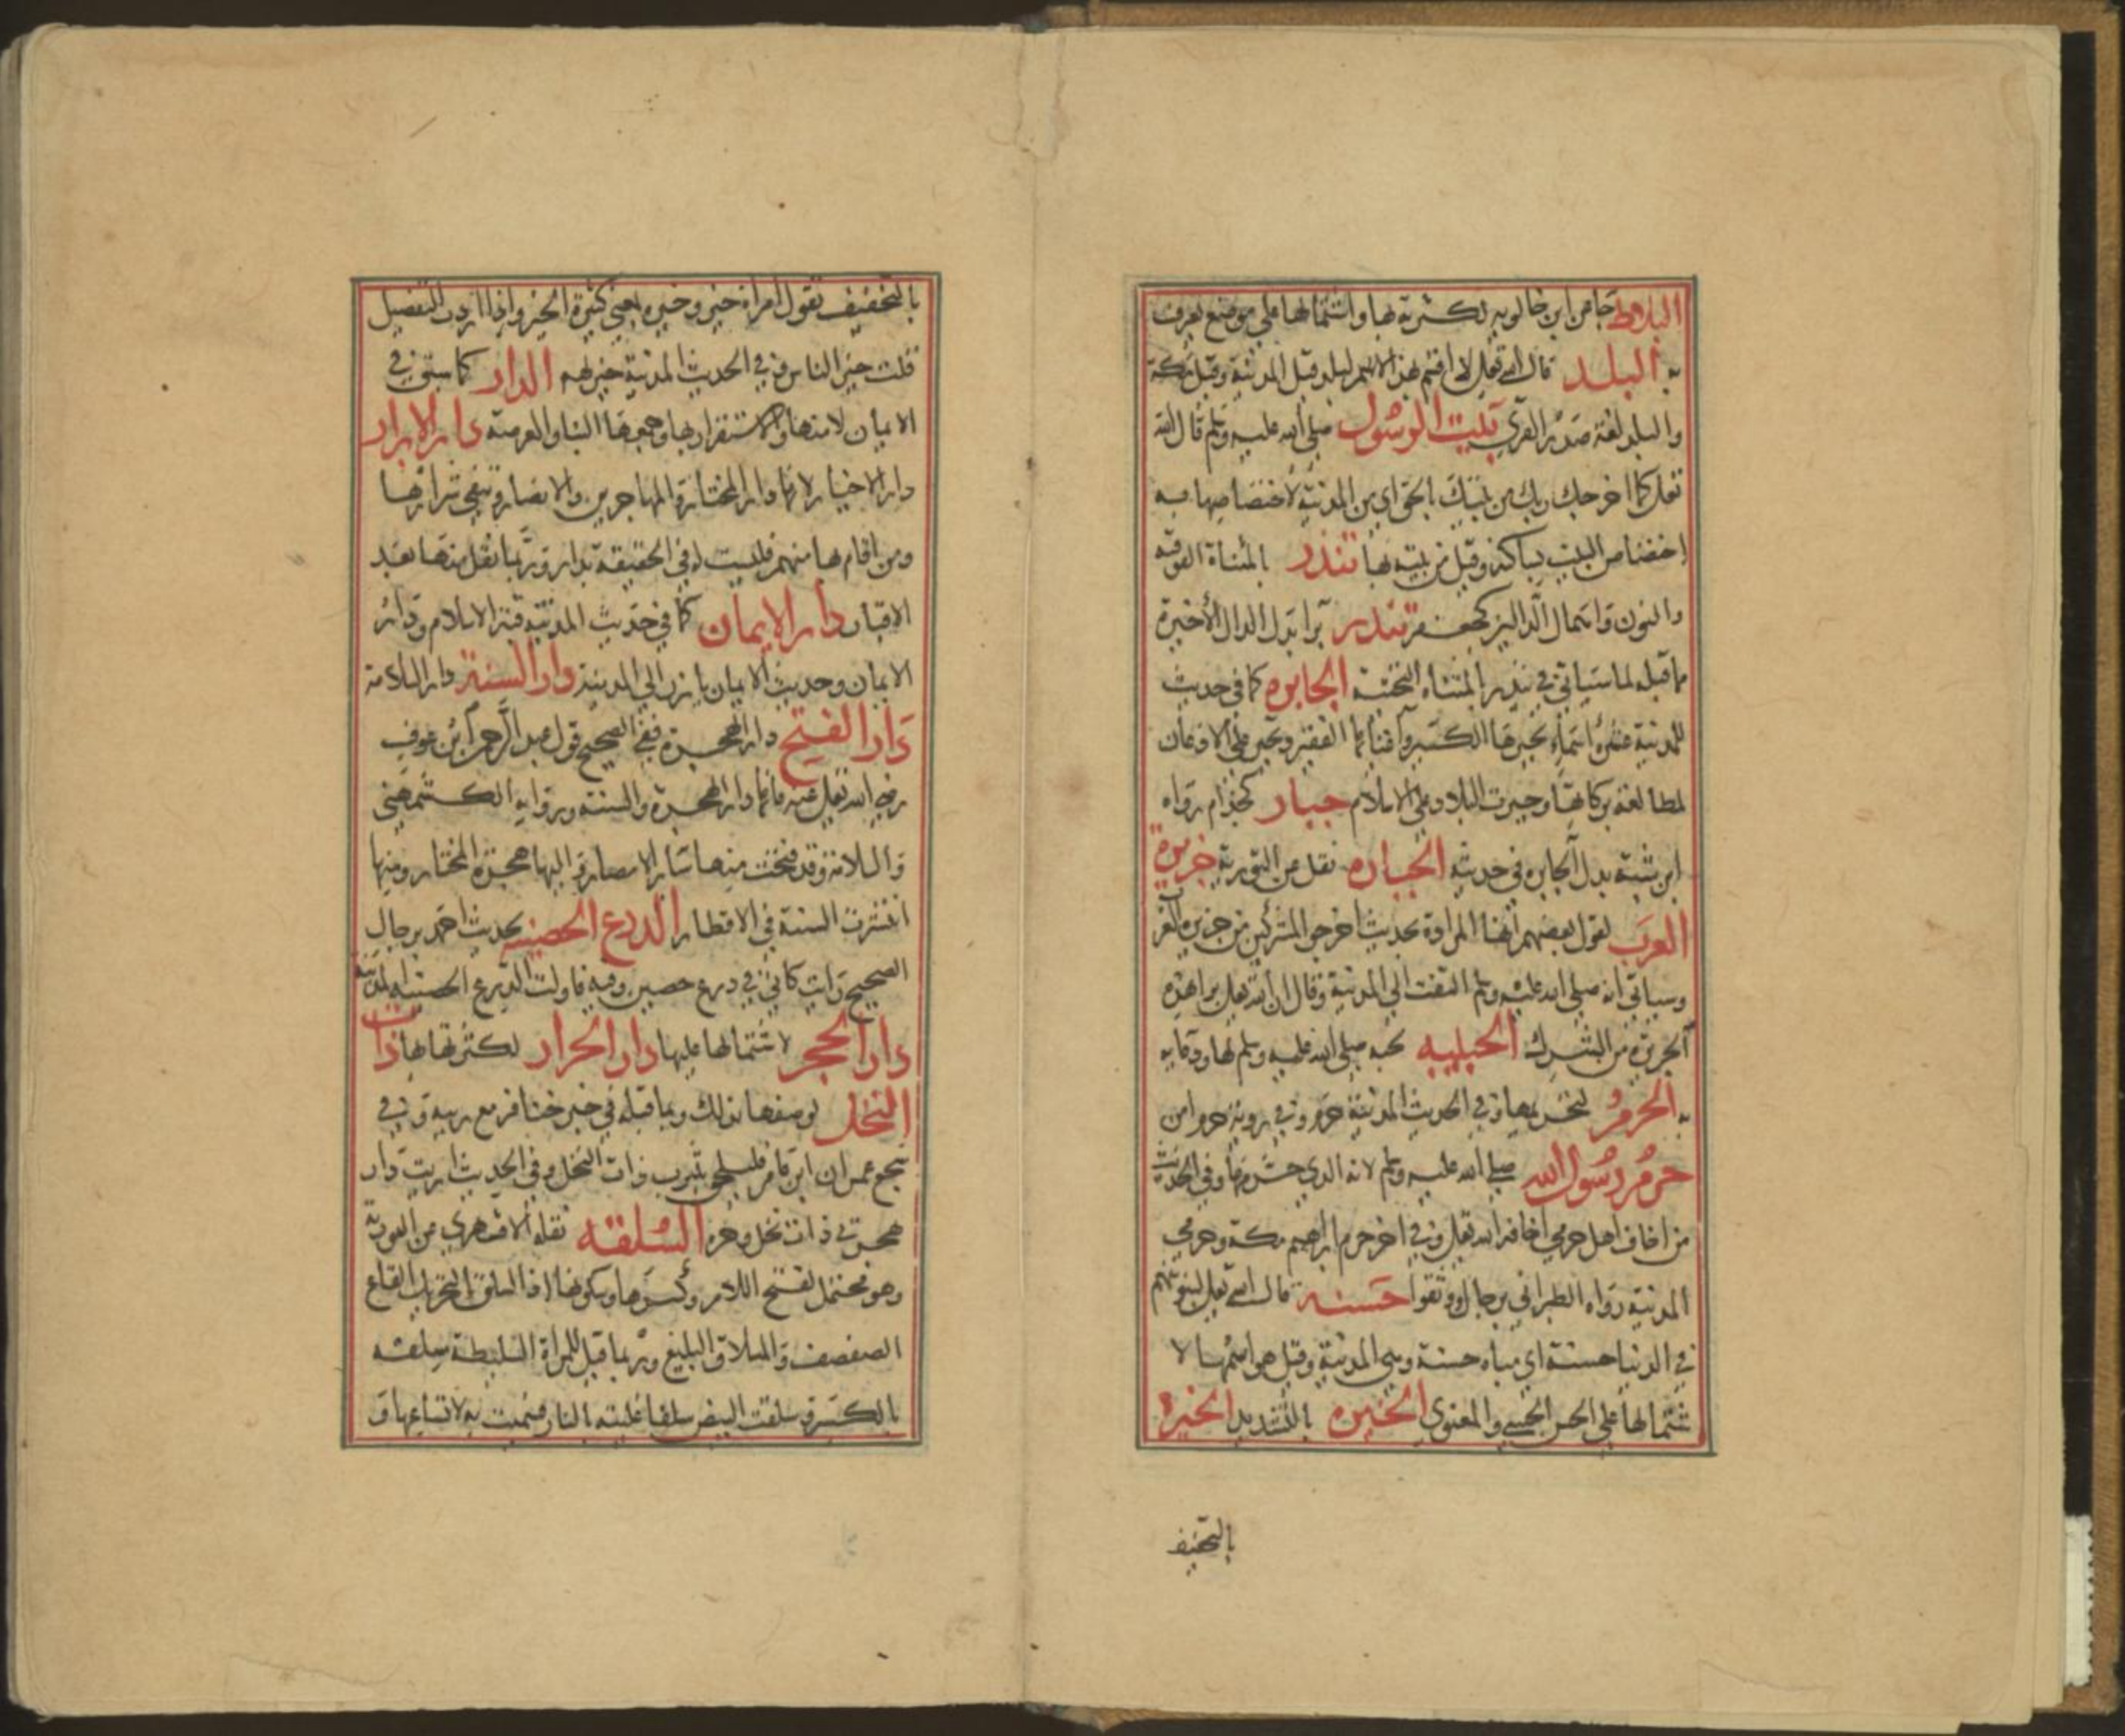 البلاط جاء عن ابن خالويه لكثرته بها واشتمالها على موضع يعرف
به البلد قال الله تعلى لا اقسم بهذا البلد قيل المدينة وقيل مكة
والبلد لغة صدر القرى بيت الرسول صلى الله عليه وسلم قال الله
تعلى كما اخرجك ربك من بيتك بالحق اى من المدينة لاختصاصها به
اختصاص البيت بساكنه وقيل من بيته بها تندد بالمثناة الفوقية
والنون واهمال الدالين كجعفر تندر برا بدل الدال الأخيرة
مما قبله لما سياتي في يندر بالمثناة التحتية الجابره كما في حديث
للمدينة عشرة اسماء تجبرها الكسير واغنائها الفقير وتجبر على الاذعان
لمطالعة بركاتها وجبرت البلاد على الاسلام جبار كحذام رواه
ابن شبة بدل الجابره في حديثه الجباره نقل عن التورية جزيرة
العرب لقول بعضهم انها المرادة بحديث اخرجوا المشركين من جزيرة العر
وسياتي انه صلى الله عليه وسلم التفت الى المدينة وقال ان الله تعلى برا هذه
الجزيرة من الشرك الحبيبه لحبه صلى الله عليه وسلم لها ودعايه
به الحرم لتحريمها وفي الحديث المدينة حرم وفي رواية حرم امن
حرم رسول الله صلى الله عليه وسلم لانه الذي حرمها وفي الحديث
من اخاف اهل حرمي اخافه الله تعلى وفي اخر حرم ابراهيم مكة وحرمي
المدينة رواه الطبراني برجال وثقوا حسنه قال الله تعلى لنبوئنهم
في الدنيا حسنة اي مباه حسنة وهي المدينة وقيل هو اسمها لا
شتمالها على الحسن الحسي والمعنوي الخيره بالتشديد الخيرة
بالتخفيف
بالتخفيف تقول امراة خير وخيره بمعنى كثيرة الخير واذا اردت التفضيل
قلت خير الناس وفي الحديث المدينة خير لهم الدار كما سبق في
الايمان لامنها والاستقرار بها وجمعها البنا والعرصة دار الابرار
دار الاخيار لانها دار المختار والمهاجرين والانصار وتنفي شرارها
ومن اقام بها منهم فليست له في الحقيقة بدار وربما نقل منها بعد
الاقبار دار الايمان كما في حديث المدينة قبة الاسلام ودار
الايمان وحديث الايمان يارز الى المدينة دار السنة دار السلامة
دار الفتح دار الهجرة ففي الصحيح قول عبد الرحمن ابن عوف
رضي الله تعلى عنه فانها دار الهجرة والسنة ورواية الكشميهني
والسلامة وقد فتحت منها سائر الامصار واليها هجرة المختار ومنها
انتشرت السنة في الاقطار الدرع الحصينه لحديث احمد برجال
الصحيح رايت كاني في درع حصين وفيه فاولت الدرع الحصينه المدينة
دار الحجر لاشتمالها عليها دار الحرار لكثرتها بها ذات
النخل لوصفها بذلك وبما قبله في خبر خنافر مع رييه وفي
سجع عمران ابن عامر فليلحق بيثرب ذات النخل وفي الحديث اريت دار
هجرتي ذات نخل وحره السلقه نقله الاقشهري عن التورية
وهو محتمل لفتح اللام وكسرها وسكونها اذ السلق بالتحريك القاع
الصفصف والسلاق البليغ وربما قيل للمراة السليطة سلقه
بالكسر وسلقت البيض سلقا غليته بالنار فسميت به لاتساعها و